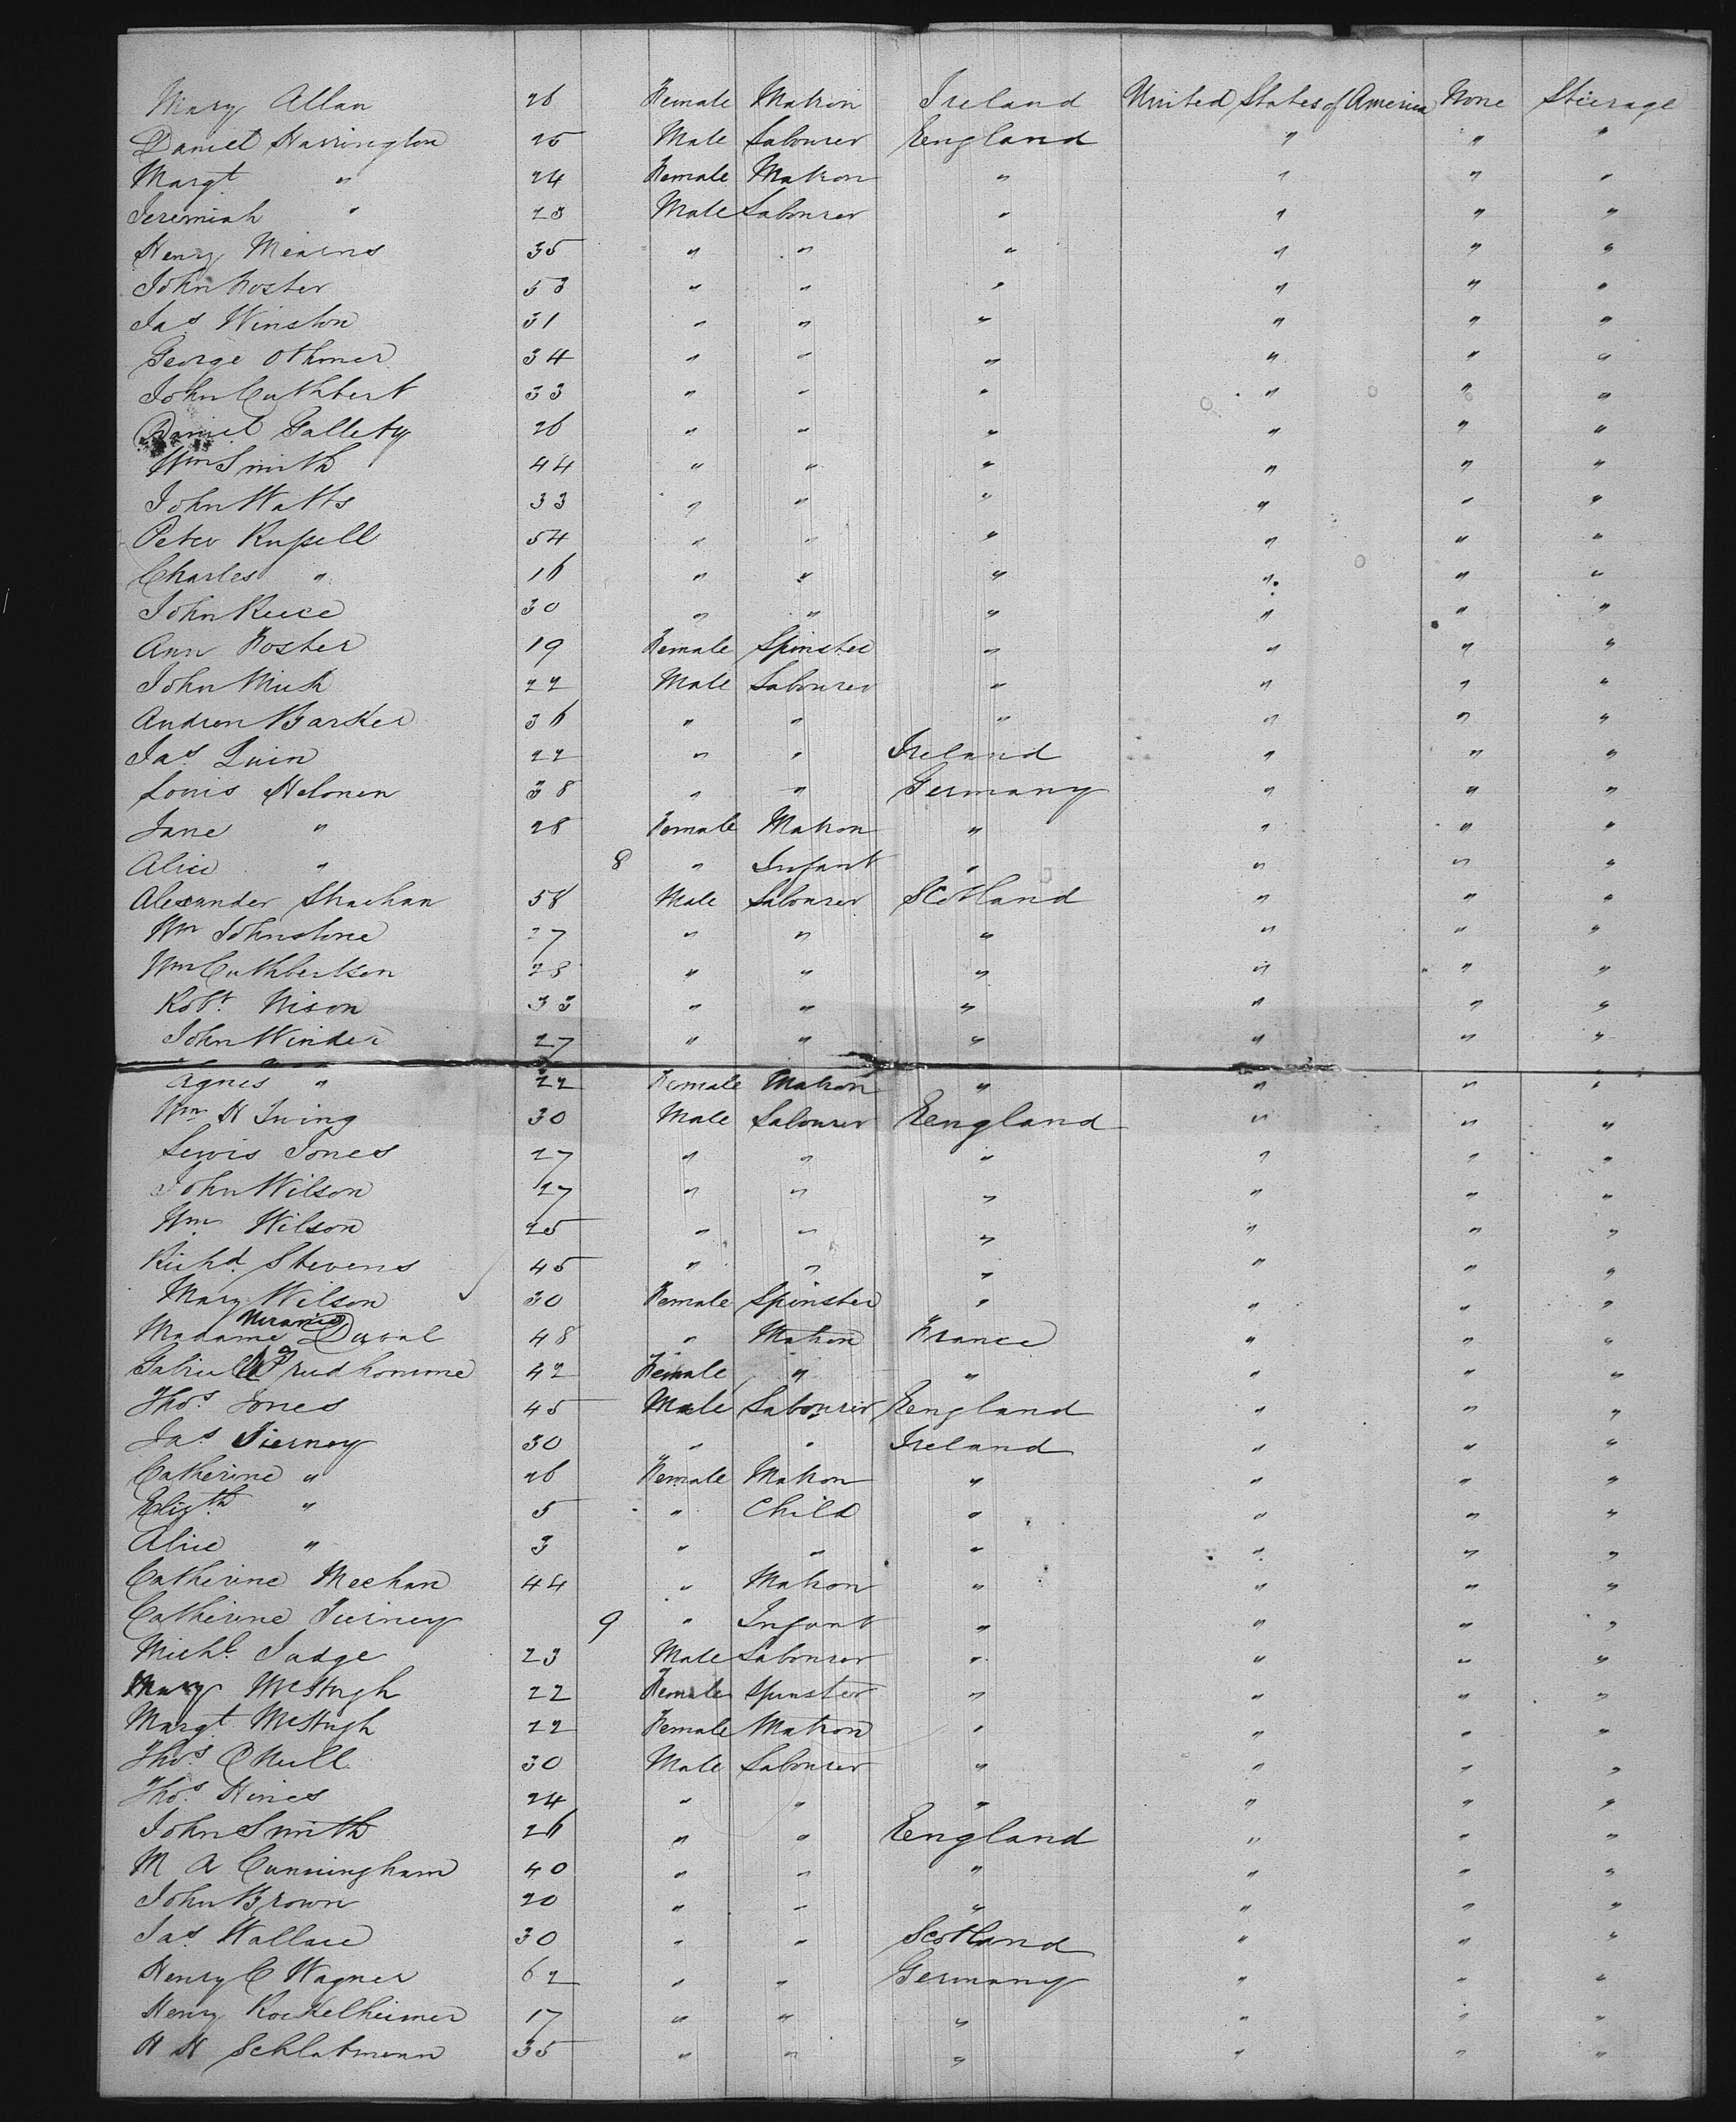 Mary Allan 26 Female Matron Ireland United States of America None Steerage
Daniel Harrington 25 Male Labourer England " " "
Margt " 24 Female Matron " " " "
Jeremiah " 23 Male Labourer " " " "
Henry Mearns 35 " " " " " "
John Foster 53 " " " " " "
Jas Winston 31 " " " " " "
George Othmer 34 " " " " " "
John Cuthbert 33 " " " " " "
Daniel Gallety 26 " " " " " "
Wm Smith 44 " " " " " "
John Watts 33 " " " " " "
Peter Russell 54 " " " " " "
Charles " 16 " " " " " "
John Reece 30 " " " " " "
Ann Foster 19 Female Spinster " " " "
John Mush 22 Male Labourer " " " "
Andrew Barker 36 " " " " " "
Jas. Quin 22 " " Ireland " " "
Louis Helonen 38 " " Germany " " "
Jane " 28 Female Matron " " " "
Alice " 8 " Infant " " " "
Alexander Strachan 58 Male Labourer Scotland " " "
Wm Johnstone 27 " " " " " "
Wm Cuthbertson 28 " " " " " "
Robt. Nixon 33 " " " " " "
John Winder 27 " " " " " "
Agnes " 22 Female Matron " " " "
Wm H Twing 30 Male Labourer England " " "
Lewis Jones 27 " " " " " "
John Wilson 27 " " " " " "
Wm Wilson 25 " " " " " "
Richd. Stevens 45 " " " " " "
Mary Wilson 30 Female Spinster " " " "
Madame Duval 48 " Matron France " " "
Prudhomme 42 Female " " " " "
Thos. Jones 45 Male Labourer England " " "
Jas. Tierney 30 " " Ireland " " "
Catherine " 26 Female Matron " " " "
Elizth " 5 " Child " " " "
Alice " 3 " " " " " "
Catherine Meehan 44 " Matron " " " "
Catherine Tierney 9 " Infant " " " "
Michl. Judge 23 Male Labourer " " " "
Mary McHugh 22 Female Spinster " " " "
Margt McHugh 22 Female Matron " " " "
Thos. O'Neill 30 Male Labourer " " " "
Thos. Hines 24 " " " " " "
John Smith 26 " " England " " "
M A Cunningham 40 " " " " " "
John Brown 20 " " " " " "
Jas Wallace 30 " " Scotland " " "
Henry C Wagner 62 " " Germany " " "
Henry Rockelheimer 17 " " " " " "
H H Schlatmann 35 " " " " " "